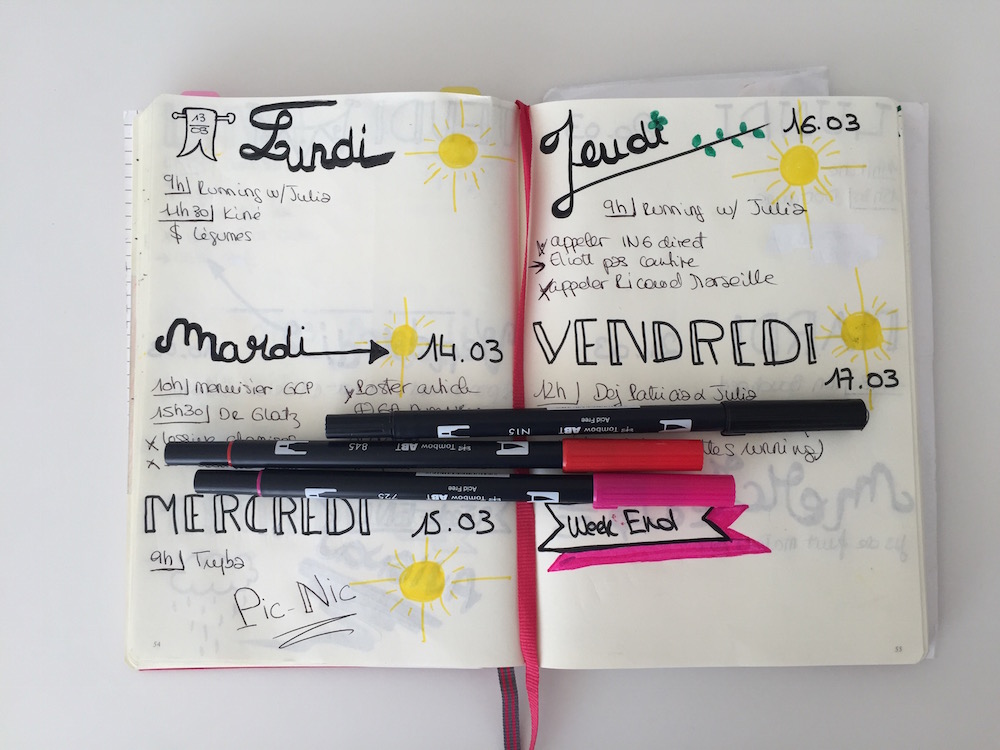 13
03
Lundi
9h| Running w/ Julia
11h30| Kiné
$ légumes
Mardi
14.03
10h| menuisier GCP
15h30| De Glatz
x Poster article
x
x
MERCREDI
15.03
9h| Tryba
Pic-Nic
54
Jeudi
16.03
9h| Running w/ Julia
x appeler ING direct
→ Eliott pas cantine
x appeler Ricaud Marseille
VENDREDI
17.03
12h| Dej Patricia & Julia
running)
Week-End
55
N15
Tombow ABT
Acid Free
845
Tombow ABT
725
Tombow ABT
Acid Free